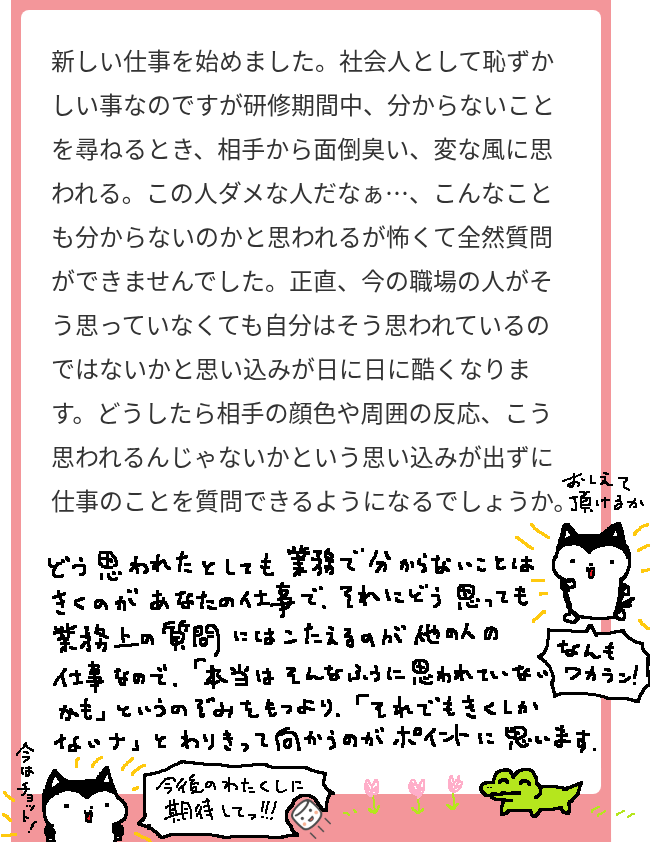 新しい仕事を始めました。社会人として恥ずか
しい事なのですが研修期間中、分からないこと
を尋ねるとき、相手から面倒臭い、変な風に思
われる。この人ダメな人だなぁ…、こんなこと
も分からないのかと思われるが怖くて全然質問
ができませんでした。正直、今の職場の人がそ
う思っていなくても自分はそう思われているの
ではないかと思い込みが日に日に酷くなりま
す。どうしたら相手の顔色や周囲の反応、こう
思われるんじゃないかという思い込みが出ずに
仕事のことを質問できるようになるでしょうか。
おしえて
頂けるか
どう思われたとしても業務で分からないことは
きくのがあなたの仕事で、それにどう思っても
業務上の質問にはこたえるのが他の人の
仕事なので、「本当はそんなふうに思われていない
かも」というのぞみをもつより、「それでもきくしか
ないナ」とわりきって向かうのがポイントに思います。
なんも
ワカラン!
今はチョット!
今後のわたくしに
期待してっ!!!